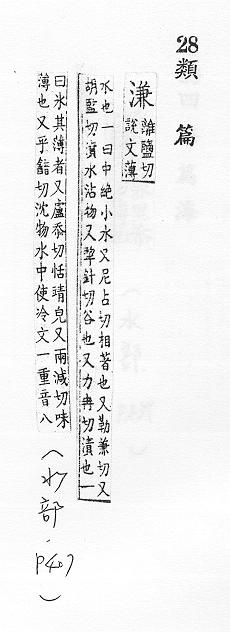 28類篇
濂 離鹽切
說文薄
水也一曰中絶小水又尼占切相著也又勒兼切又
胡監切濆水沾物又犂針切谷也又力冉切漬也一
曰氷其薄者又盧忝切恬靖皃又兩減切味
薄也又乎韽切沈物水中使冷文一重音八
(水部·P407)